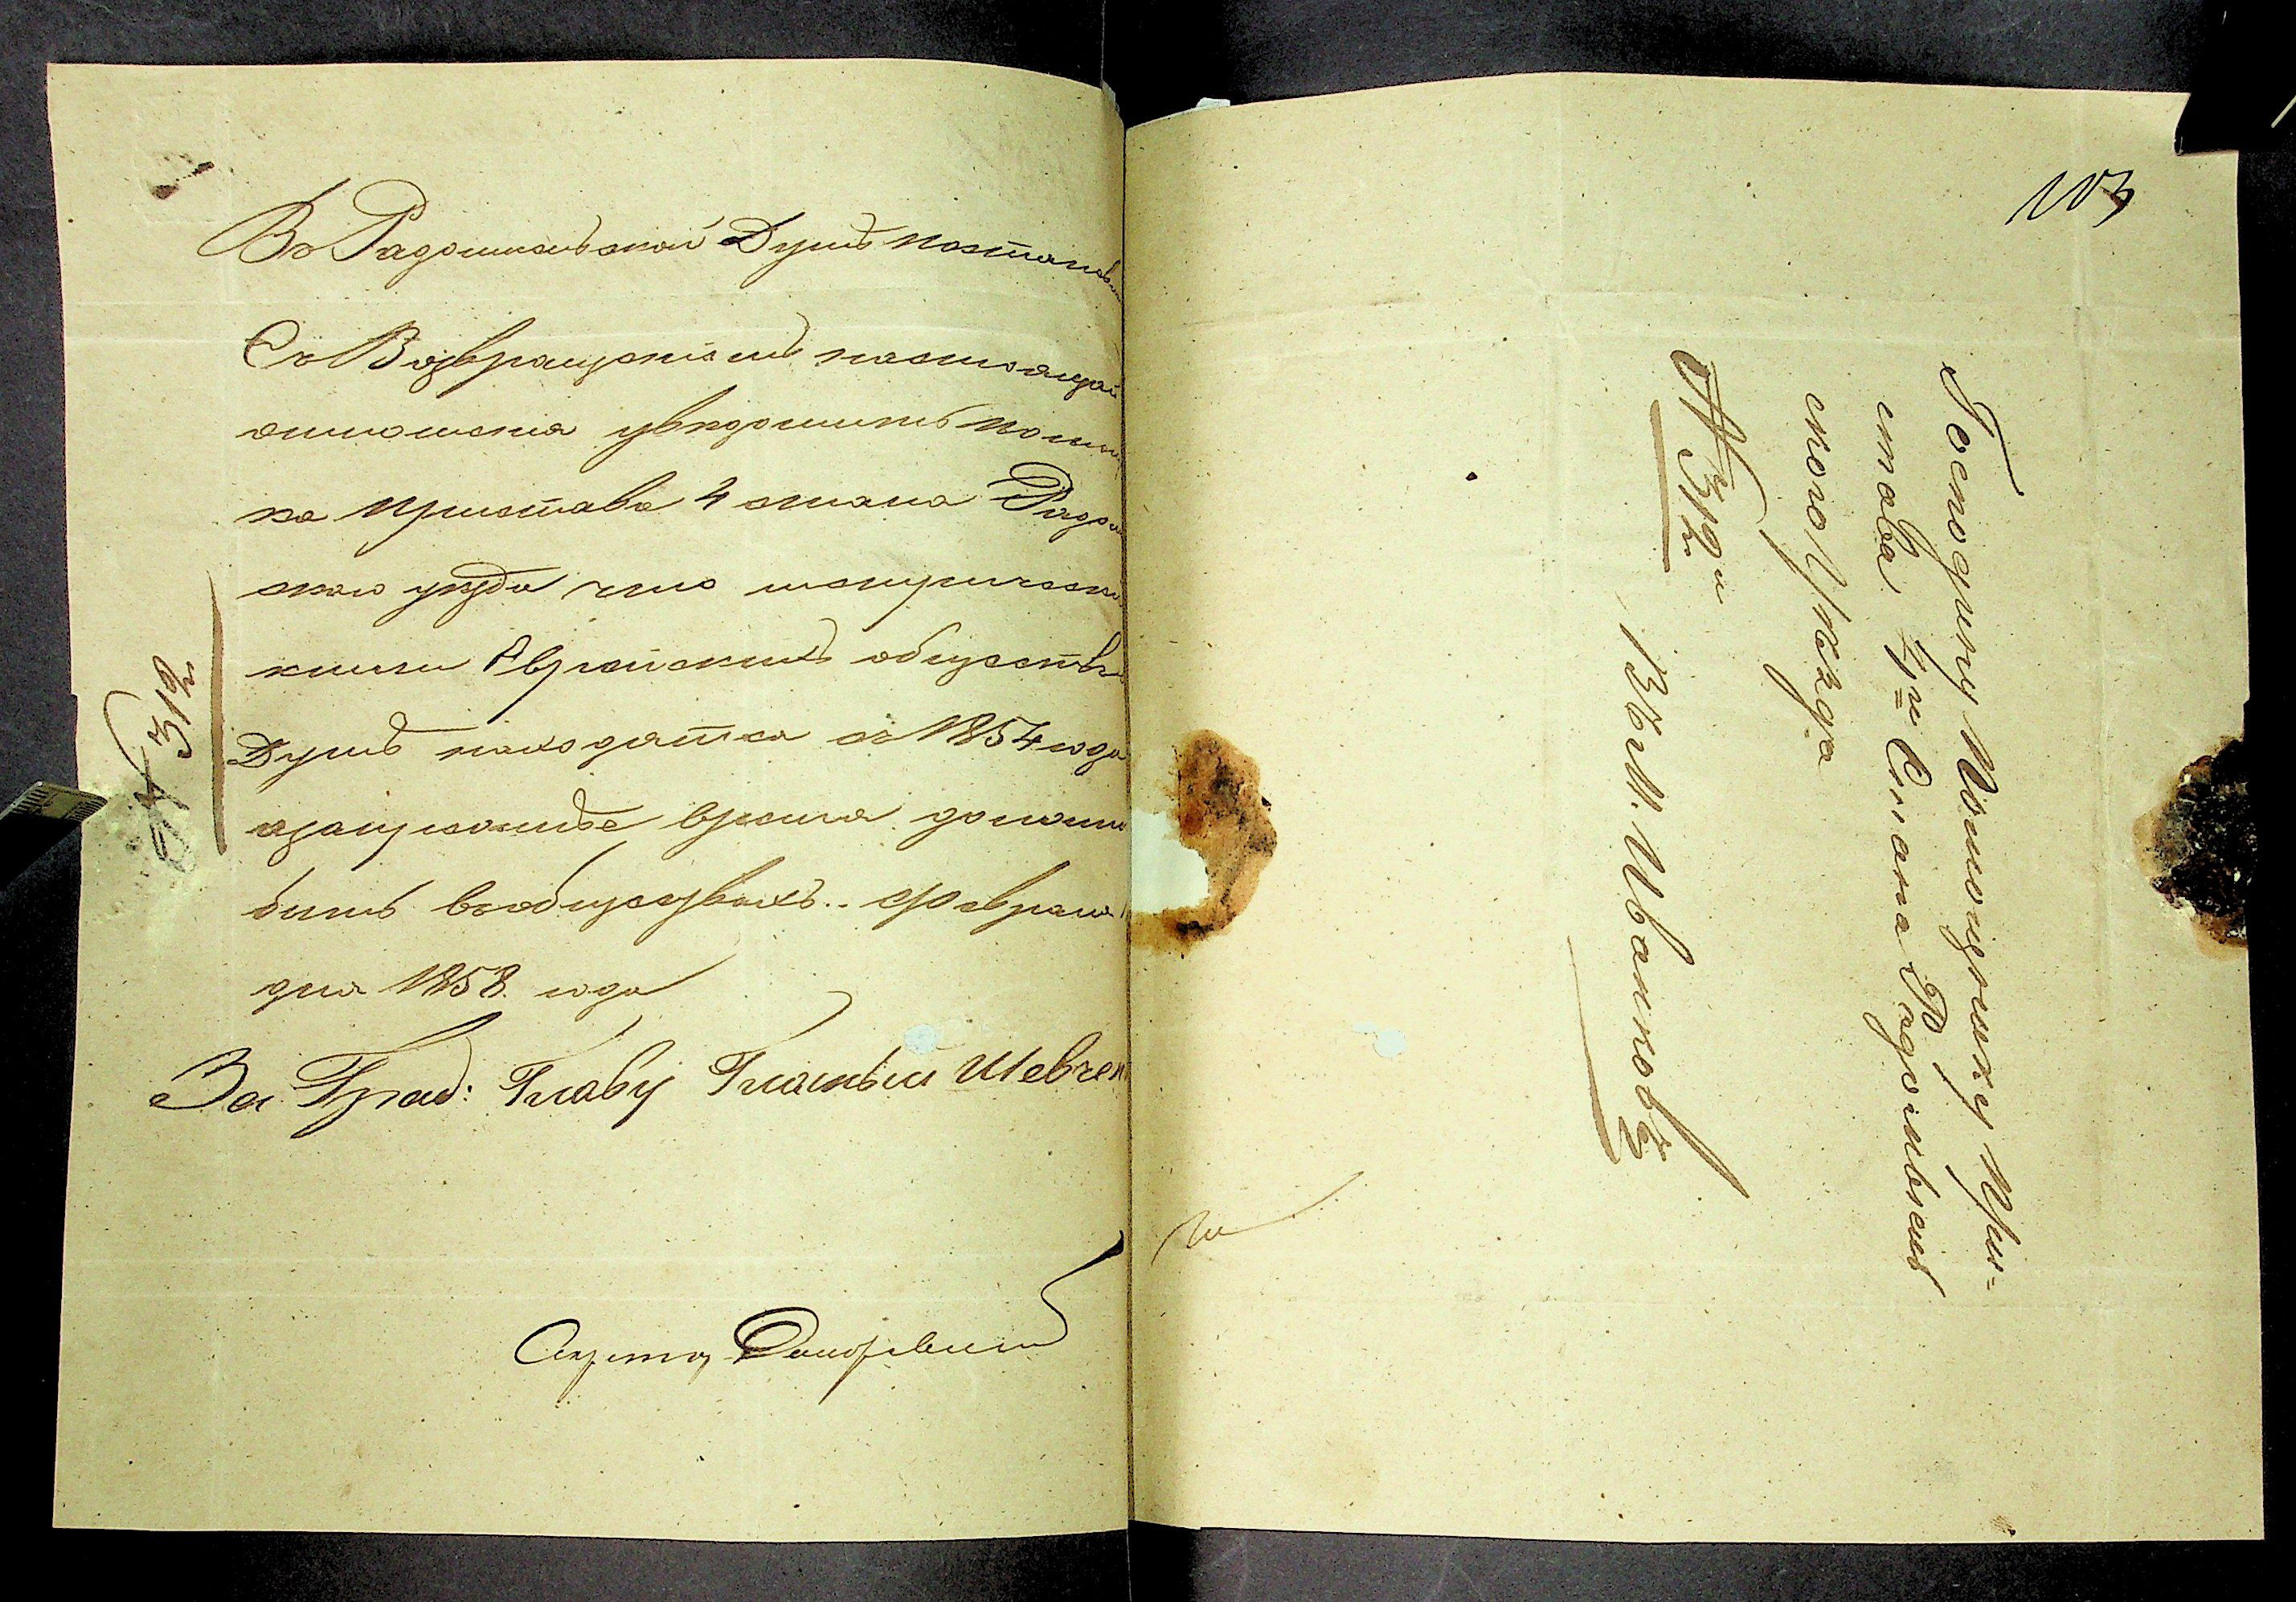 Въ Радомысльской Думѣ постановл
Съ Возвращеніемъ настоящаго
отношенія увѣдомить помощ
ка пристава 4 стана Радом
скаго уѣзда что метрическі
книги Еврейскихъ обществъ
Думѣ находятся съ 1854 года
запрежнѣе время должны
быть вообществахъ.. Февраля
дня 1858. года
За Град: Главу Гласный Шевчен
Секрета
№ 312
103
Господину Помощнику При=
става 4го Стана Радомысль
скаго Уѣзда
№ 312й
Въ М. Иванковъ